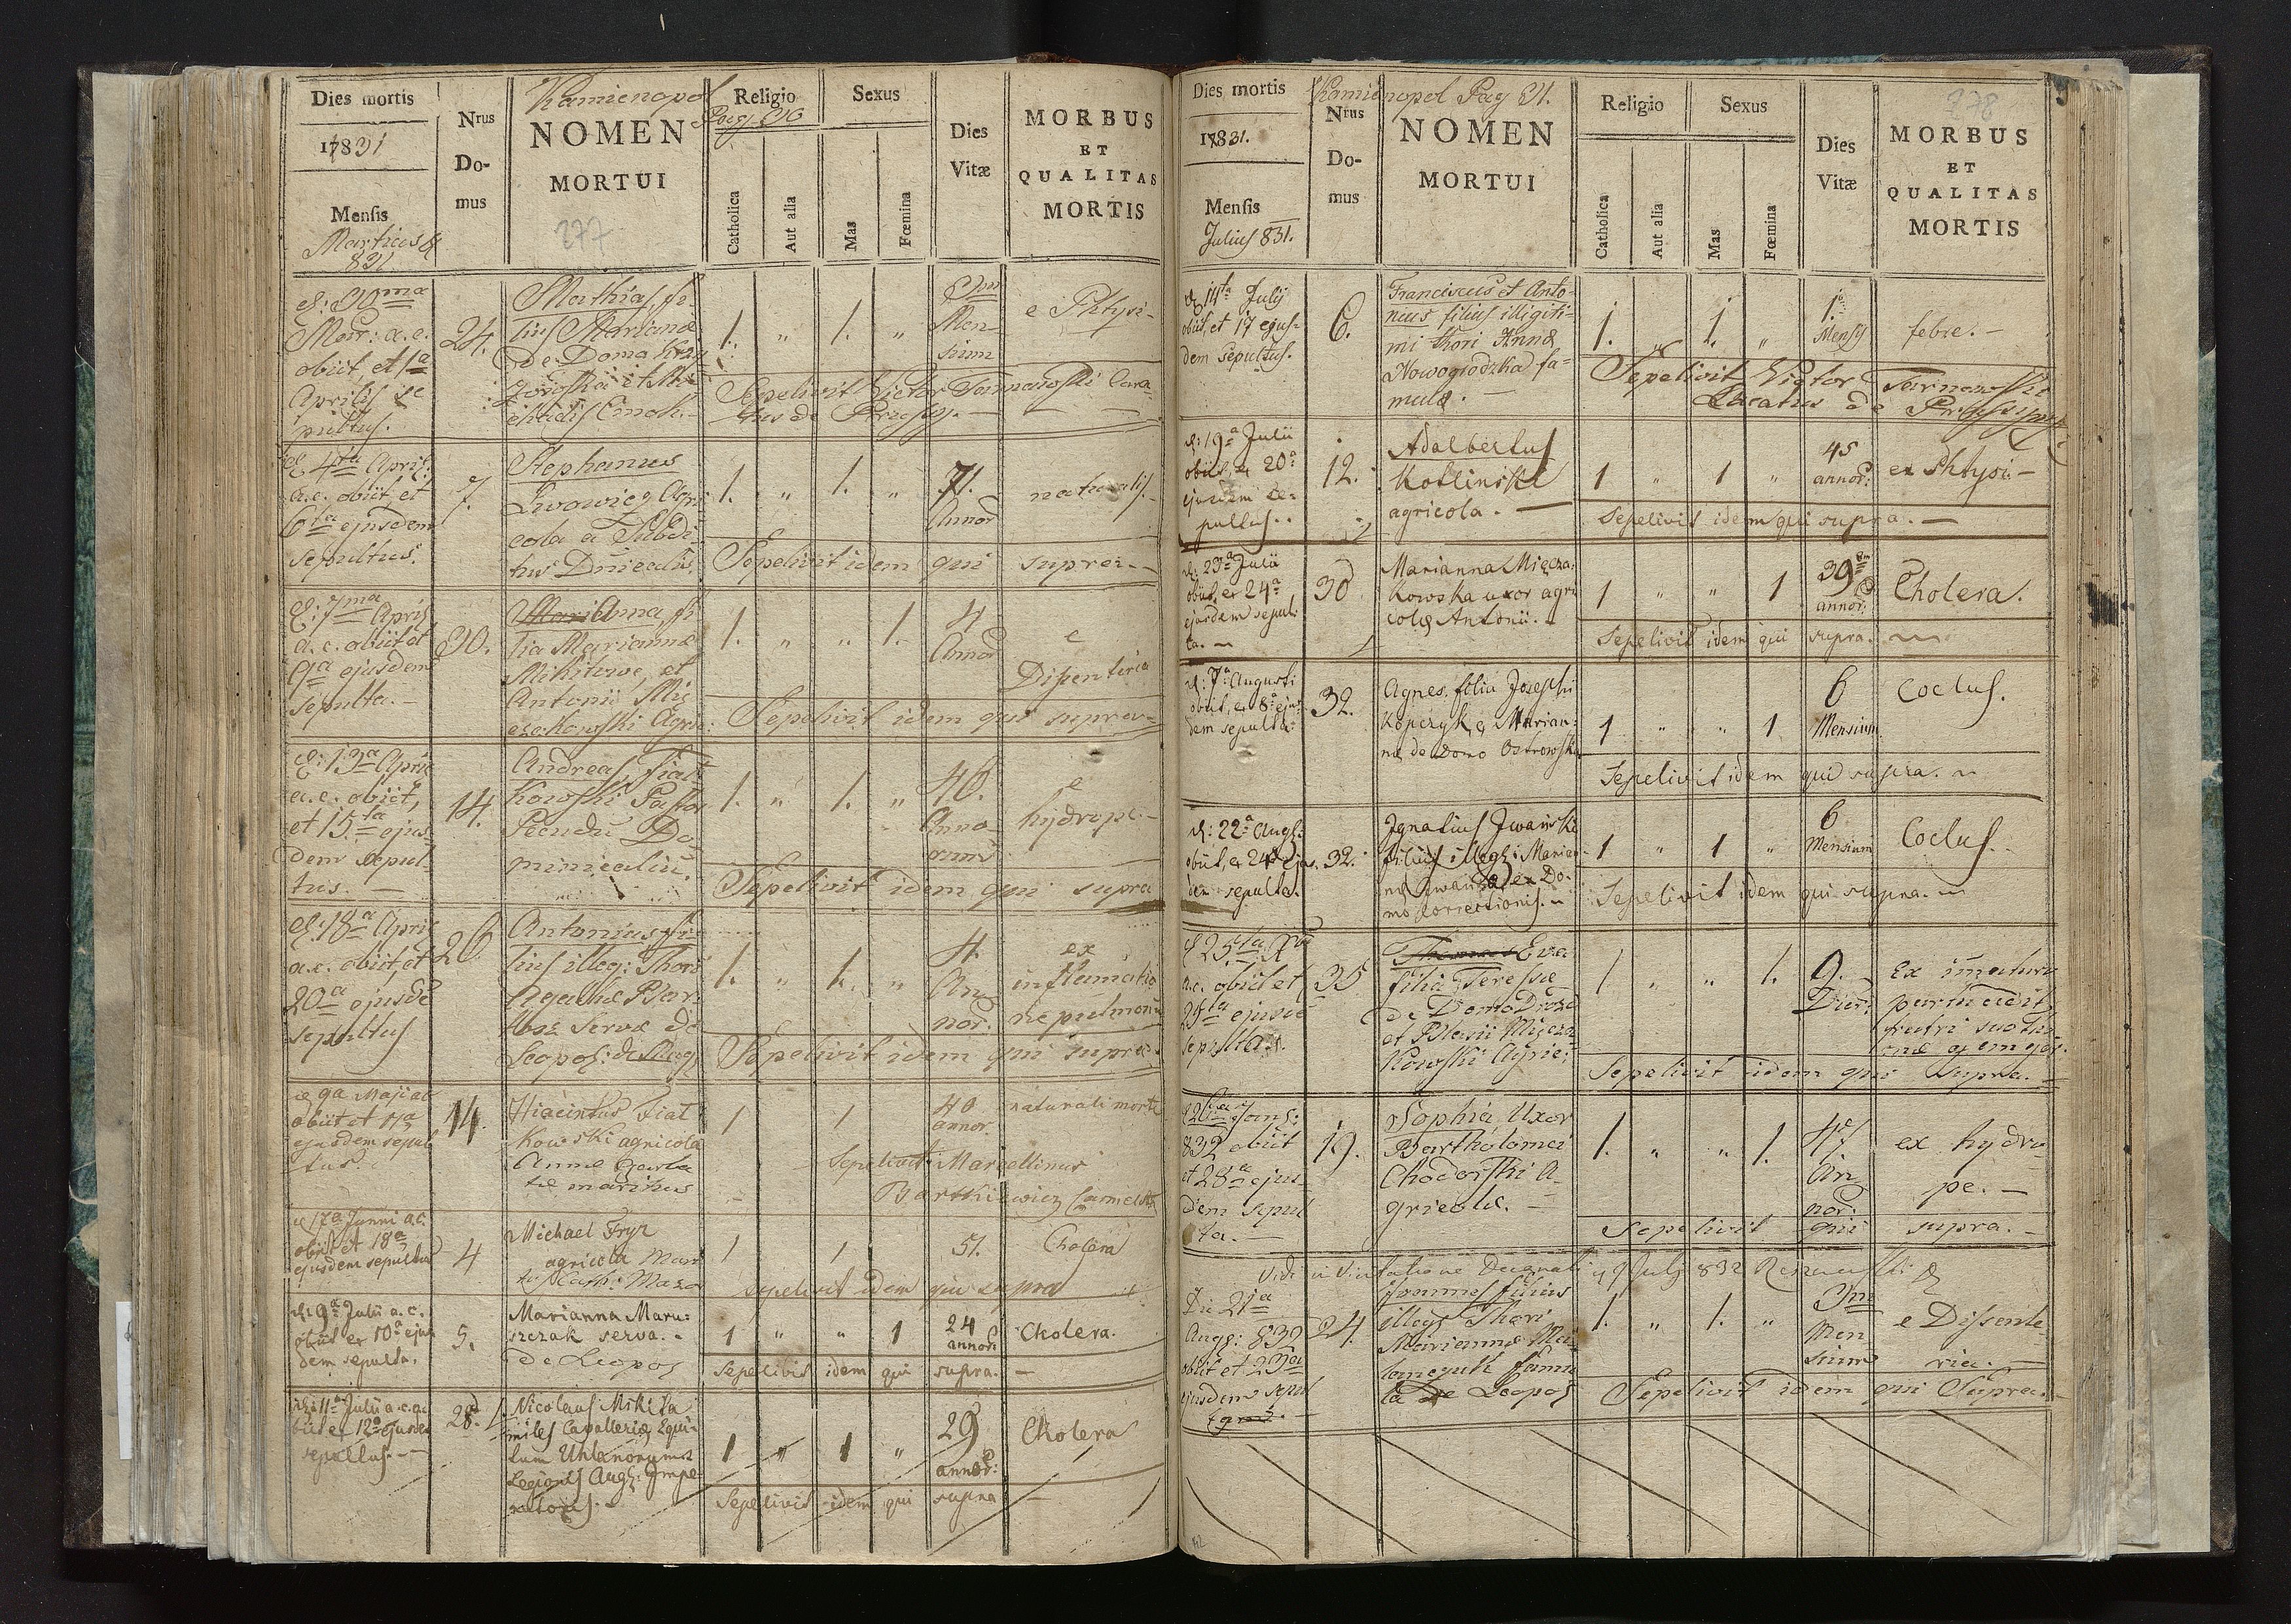 Kamienopol
Pag 30
Dies mortis
17831
Mensis
Martius &
831
Nrus
Do-
mus
NOMEN
MORTUI
277
Religio
Catholica
Aut alia
Sexus
Mas
Fœmina
Dies
Vitæ
MORBUS
ET
QUALITAS
MORTIS
d: 30ma
Mar: a.c.
obiit, et 1a
Aprilis se
pultus.
24.
Mathias, fi-
lius Mariannæ
De Domo
1. „ 1. „
3um
Men-
sium
e Phtysi-
Sepelivit Victor Tarnawski Cora-
tus de
d 4ta April:
a.c. obiit, et
6ta ejusdem
sepultus.
7.
Stephanus
Lwowicz Agri
cola a Subdi-
tus Dnicalis.
1. „ 1. „
71.
Annor
naturalis.
Sepelivit idem qui supra.
d: 7ma April
a.c. obiit et
9a ejusdem
sepulta.
30.
Mari Anna fi
lia Mariannæ
Mikitowe, et
Antonii Mię
czakowski Agric:
1. „ „ 1.
4
Annor
e
Disenteria
Sepelivit idem qui supra
d: 13a April
a.c. obiit,
et 15ta ejus-
dem sepul-
tus.
14.
Andreas Fiat
kowski Pastor
Pecudu Do-
minicaliu.
1. „ 1. „
46.
Anno-
rum
e
hydrope.
Sepelivit idem qui supra
d: 18a April
a.c. obiit, et
20a ejusde
sepultus
26
Antonius, fi-
lius illeg: Thori
Agathæ
servæ de
Leopol:
1. „ 1. „
4.
An
nor.
ex
inflamatio
ne pulmonu
Sepelivit idem qui supra.
d 9a Maji ac
obiit et 11a
ejusdem sepul
tus.
14.
Hiacintus Fiat
kowski agricola
Annæ
maritus
1 1
40
annor.
naturali morte
Sepelivit Marcellinus
Bartkiewicz
d 17a Junii a.c.
obiit et 18a
ejusdem sepultus
4
Michael Fryz
agricola Mari
tus Cath: Maza
1 1
51.
Cholera
sepelivit idem qui supra
d: 9a Julii a.c.
obiit et 10a ejus
dem sepulta.
5.
Marianna Maru-
szczak serva.
de Leopol
1 „ „ 1
24
annor:
Cholera.
Sepelivit idem qui supra. —
d: 11a Julii a.c. o
biit et 12a ejusdem
sepultus.
28.
Nicolaus Mikita
miles Cavalleriæ Equi-
tum Uhlanorum
Legionis Aug: Impe
ratoris.
1 „ 1 „
29
annor:
Cholera
Sepelivit idem qui supra —
Kamienopol Pag 31.
Dies mortis
17831.
Mensis
Julius 831.
Nrus
Do-
mus
NOMEN
MORTUI
Religio
Catholica
Aut alia
Sexus
Mas
Fœmina
Dies
Vitæ
278
MORBUS
ET
QUALITAS
MORTIS
d 14ta July
obiit, et 17 ejus-
dem sepultus.
6.
Franciscus et Anto-
nius filius illigiti-
mi thori Annæ
Nowogrodzka fa-
mulæ.
1. „ 1. „
1.
Mensis
febre. —
Sepelivit Victor Tarnawski
de
d: 19a Julii
obiit, et 20a
ejusdem se-
pultus.
12.
Adalbertus
Kotlinski
agricola. —
1 „ 1 „
45
annor:
ex Phtysi —
Sepelivit idem qui supra. —
d: 23a Julii
obiit, et 24a
ejusdem sepul-
ta. —
30
Marianna Mięcza-
kowska uxor agri
colæ Antonii.
1 „ „ 1
39
annor:
Cholera.
Sepelivit idem qui supra.
d: 7a Augusti
obiit, et 8a ejus
dem sepulta.
32.
Agnes, filia Josephi
Kopczyk, & Marian-
næ de Domo Ostrowska
1 „ „ 1
6
Mensium
Coclus.
Sepelivit idem qui supra.
d: 22a Aug:
obiit, et 24a ejus-
dem sepulta.
32.
Ignatius Iwański
filius illeg: Marian
næ ex Do-
mo Correctionis.
1 „ 1 „
6
Mensium
Coclus.
Sepelivit idem qui supra.
d 25ta
a.c. obiit et
ejusde
sepulta.
35
Thomas Eva
filia Teressæ
de Domo
et Blasii Mięcza
kowski Agric:
1 „ „ 1.
9.
Dier:
Ex imaturo
partu
Sepelivit idem qui supra.
Jan:
832 obiit
et 28a ejus-
dem sepul
ta. —
19.
Sophia Uxor
Bartholomei
Chodorski A-
gricolæ. —
1. „ „ 1.
47
An
nor:
ex hydro
pe. —
Sepelivit qui supra. —
Vidi in Visitatione Decanali 9 July 832
Die 21a
Aug: 832
obiit et 23a
ejusdem sepul
24.
Joannes filius
illeg: Thori
Mariannæ
famu
la de Leopol
1. „ 1. „
3um
Men
sium
e Dissente-
ria. —
Sepelivit idem qui Supra.
42